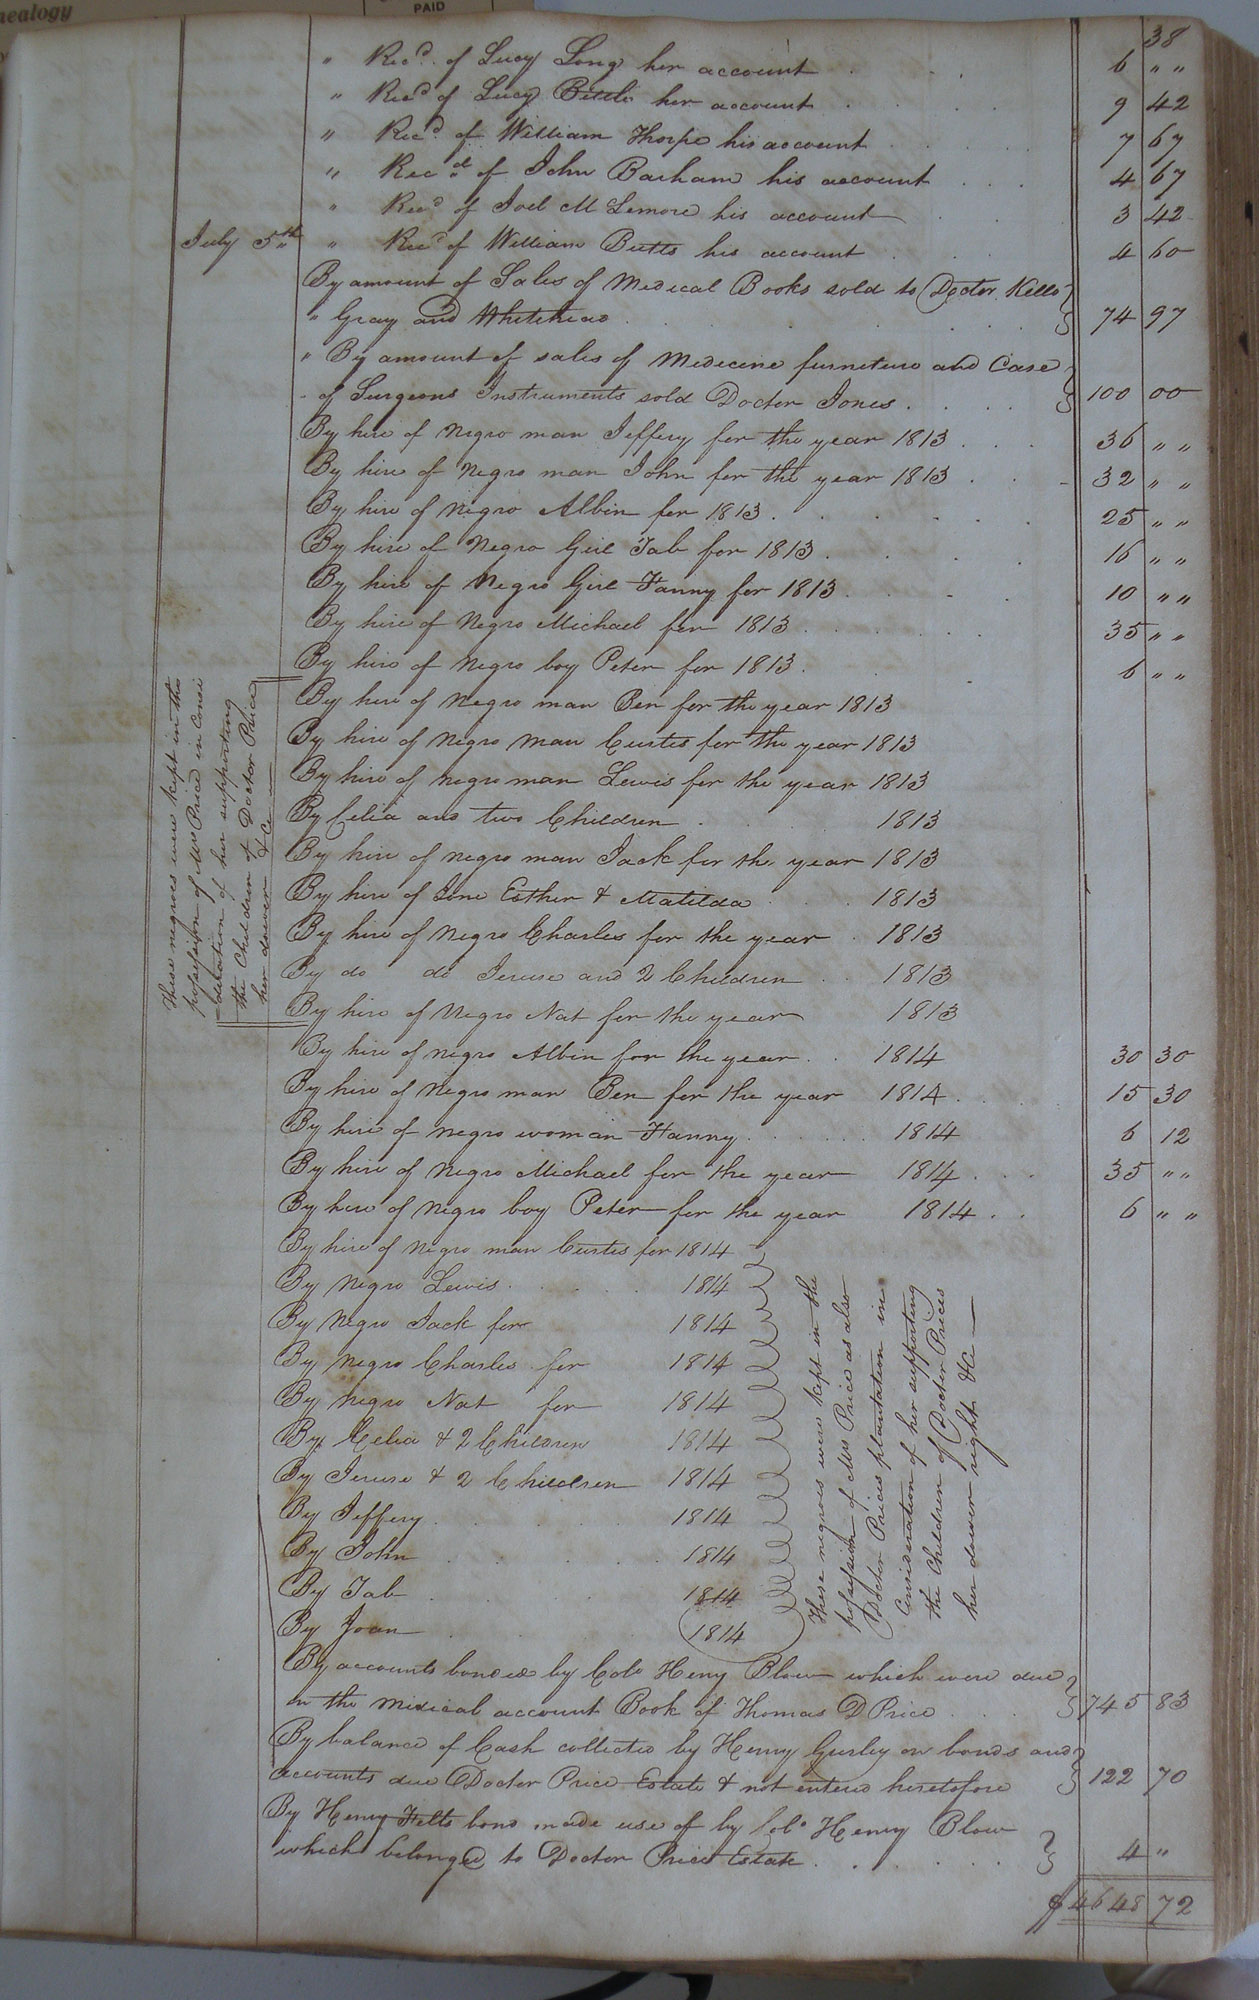 nealogy
PAID
38
" Recd. of Lucy Long her account 6 " "
" Recd of Lucy Bittle her account 9 42
" Recd. of William Thorpe his account 7 67
" Recd. of John Barham his account 4 67
" Recd of Joel M Lemore his account 3 42
July 5th " Recd of William Butts his account 4 60
By amount of Sales of Medical Books sold to Doctor Kello
" Gray and Whitehead 74 97
" By amount of sales of Medicine furneture and Case
of Surgeons Instruments sold Doctor Jones 100 00
By hire of negro man Jeffery for the year 1813 36 " "
By hire of negro man John for the year 1813 32 " "
By hire of negro Albin for 1813 25 " "
By hire of Negro Girl Tab for 1813 16 " "
By hire of Negro Girl Fanny for 1813 10 " "
By hire of Negro Michael for 1813 35 " "
By hire of negro boy Peter for 1813 6 " "
By hire of negro man Ben for the year 1813
By hire of negro man Curtis for the year 1813
By hire of negro man Lewis for the year 1813
By Celia and two Children 1813
By hire of negro man Jack for the year 1813
By hire of Esther & Matilda 1813
By hire of Negro Charles for the year 1813
By do do and 2 Children 1813
By hire of Negro Nat for the year 1813
These negroes were kept in the
possession of Mrs Price in Consi
deration of her supporting
the Children of Doctor Price
her dower &c
By hire of negro Albin for the year 1814 30 30
By hire of Negro man Ben for the year 1814 15 30
By hire of negro woman Fanny 1814 6 12
By hire of Negro Michael for the year 1814 35 " "
By hire of negro boy Peter for the year 1814 6 " "
By hire of negro man Curtis for 1814
By negro Lewis 1814
By Negro Jack for 1814
By negro Charles for 1814
By negro Nat for 1814
By Celia & 2 Children 1814
By & 2 Children 1814
By Jeffery 1814
By John 1814
By Tab 1814
By Joan 1814
These negroes were kept in the
possession of Mrs Price as also
Doctor Prices plantation in
Consideration of her supporting
the Children of Doctor Prices
her dower right &c
By accounts bonded by Colo Henry Blow which were due
on the medical account Book of Thomas D Price 745 83
By balance of Cash collected by Henry Gurley on bonds and
accounts due Doctor Price Estate & not entered heretofore 122 70
By Henry Felts bond made use of by Colo Henry Blow
which belonged to Doctor Price Estate 4 "
$4648 72